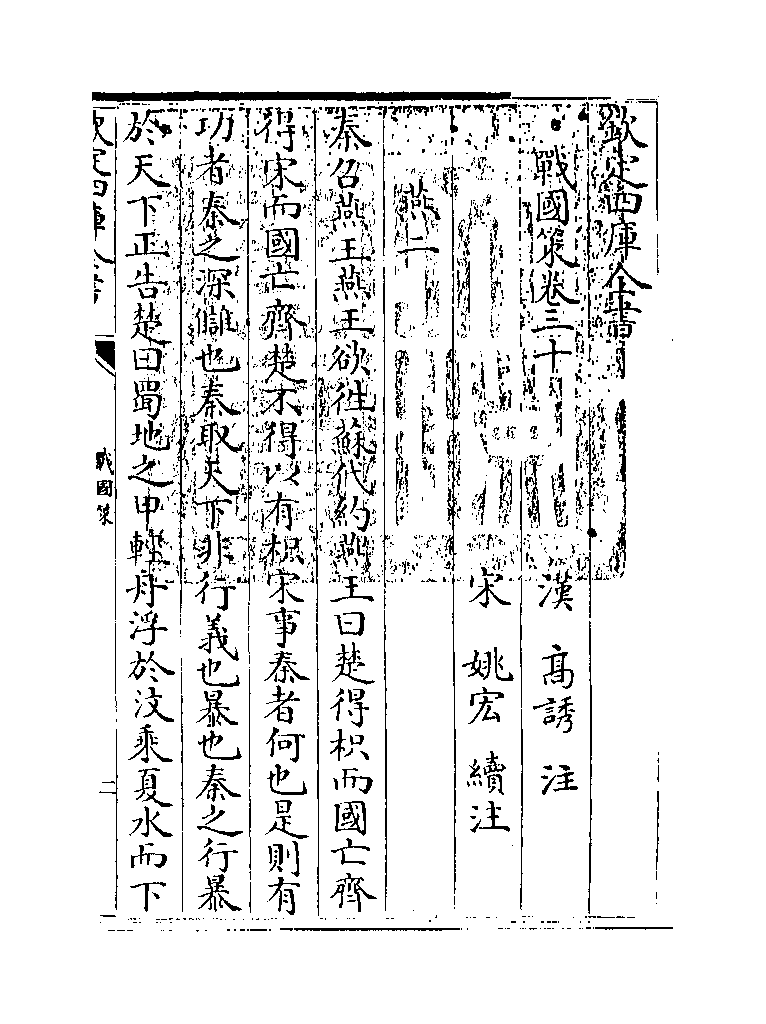 欽定四庫全書
戰國策卷三十
漢 髙誘 注
宋 姚宏 續注
燕二
秦召燕王燕王欲徃蘇代約燕王曰楚得枳而國亡齊
得宋而國亡齊楚不得以有枳宋事秦者何也是則有
功者秦之深讎也秦取天下非行義也暴也秦之行暴
於天下正告楚曰蜀地之甲輕舟浮於汶乘夏水而下
欽定四庫全書
戰國策
二